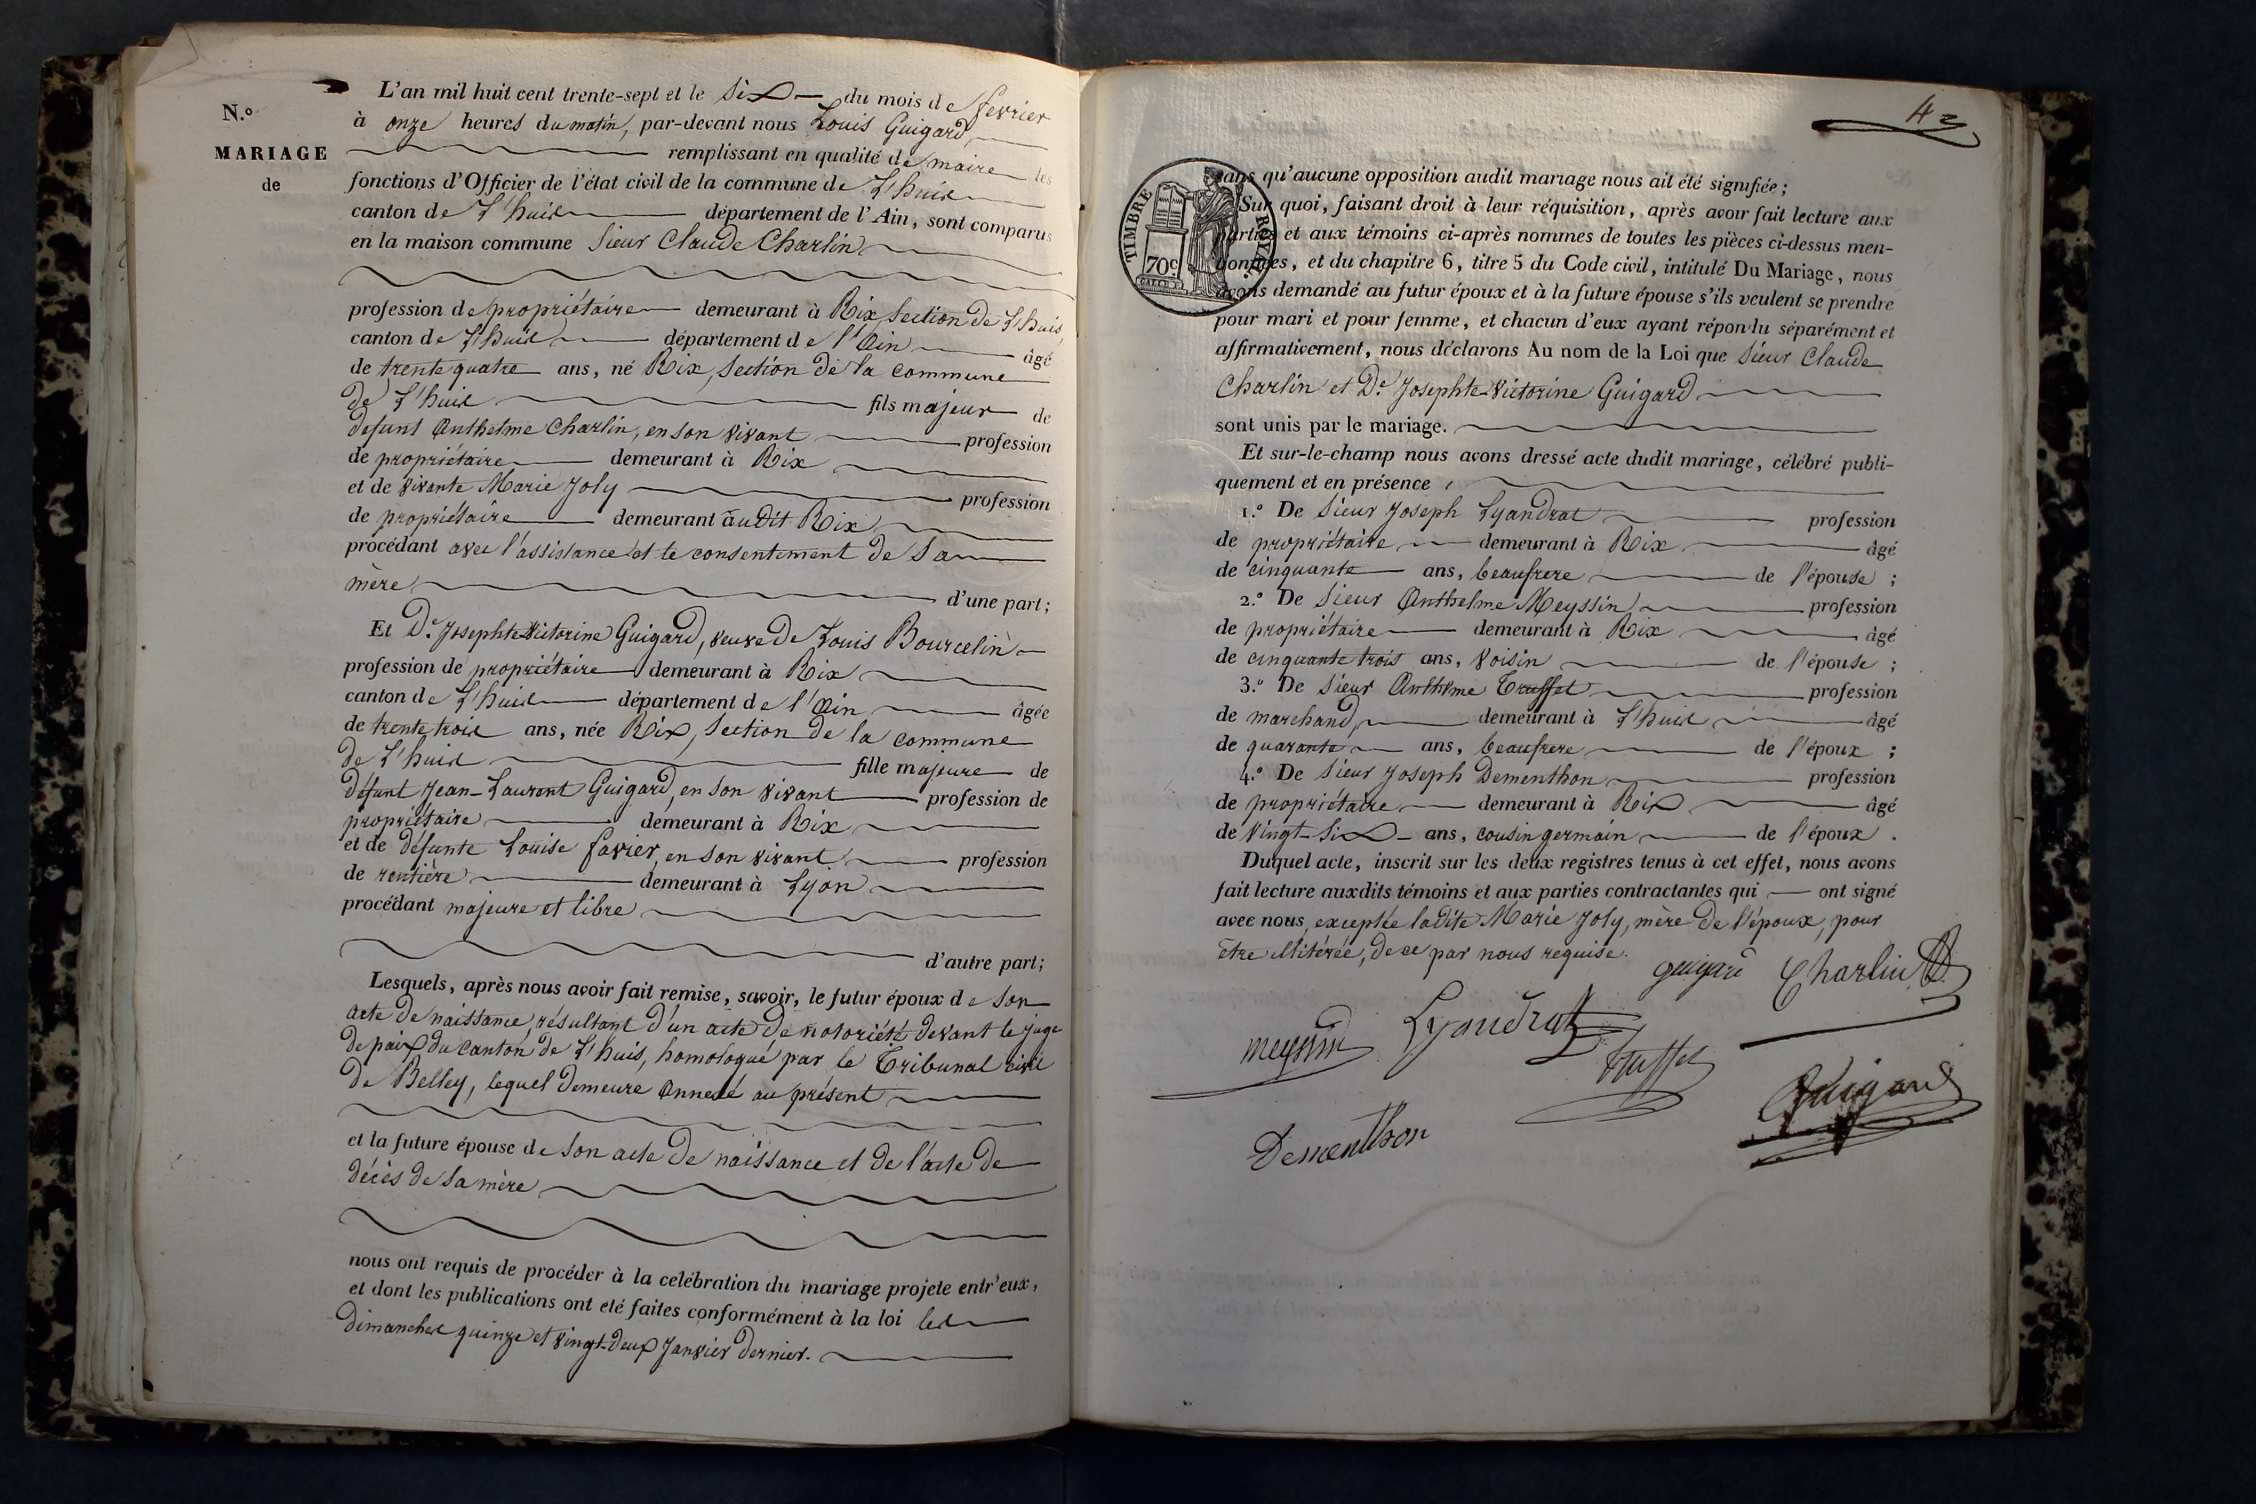 N.º
MARIAGE
de
L'an mil huit cent trente-sept et le Six du mois de fevrier
à onze heures du matin, par-devant nous Louis Guigard,
remplissant en qualité de maire les
fonctions d'Officier de l'état civil de la commune de L'huis
canton de L'huis département de l'Ain, sont comparus
en la maison commune Sieur Claude Charlin
profession de propriétaire demeurant à Rix Section de L'huis,
canton de L'huis département de l'Ain âgé
de trente quatre ans, né Rix, Section de la commune
de L'huis fils majeur de
defunt Anthelme Charlin, en son vivant profession
de propriétaire demeurant à Rix
et de vivante Marie Joly profession
de propriétaire demeurant audit Rix
procédant avec l'assistance et le consentement de Sa
mère d'une part;
Et De. Josephte-Victorine Guigard, veuve de Louis Bourcelin
profession de propriétaire demeurant à Rix
canton de L'huis département de l'Ain âgée
de trente trois ans, née Rix, Section de la commune
de L'huis fille majeure de
défunt Jean-Laurent Guigard, en son vivant profession de
propriétaire demeurant à Rix
et de défunte Louise favier, en son vivant profession
de rentière demeurant à Lyon
procédant majeure et libre
d'autre part;
Lesquels, après nous avoir fait remise, savoir, le futur époux de Son
acte de naissance, résultant d'un acte de notoriété devant le juge
de paix du canton de L'huis, homologué par le Tribunal civil
de Belley, lequel demeure Annexé au présent
et la future épouse de Son acte de naissance et de l'acte de
décès de Sa mère
nous ont requis de procéder à la celébration du mariage projete entr'eux,
et dont les publications ont eté faites conformément à la loi les
dimanches quinze et vingt-deux Janvier dernier.
42
TIMBRE ROYAL
70c
sans qu'aucune opposition audit mariage nous ait été signifiée;
Sur quoi, faisant droit à leur réquisition, après avoir fait lecture aux
parties et aux témoins ci-après nommes de toutes les pièces ci-dessus men-
tionnées, et du chapitre 6, titre 5 du Code civil, intitulé Du Mariage, nous
avons demandé au futur époux et à la future épouse s'ils veulent se prendre
pour mari et pour femme, et chacun d'eux ayant répondu séparément et
affirmativement, nous déclarons Au nom de la Loi que Sieur Claude
Charlin et De. Josephte-Victorine Guigard
sont unis par le mariage.
Et sur-le-champ nous avons dressé acte dudit mariage, célébré publi-
quement et en présence,
1.º De Sieur Joseph Lyandrat profession
de propriétaire demeurant à Rix âgé
de cinquante ans, beaufrere de l'épouse;
2.º De Sieur Anthelme Meyssin profession
de propriétaire demeurant à Rix âgé
de cinquante trois ans, voisin de l'épouse;
3.º De Sieur Anthême Truffet profession
de marchand, demeurant à L'huis âgé
de quarante ans, beaufrere de l'époux;
4.º De Sieur Joseph Dementhon profession
de propriétaire demeurant à Rix âgé
de vingt-Six ans, cousin germain de l'époux.
Duquel acte, inscrit sur les deux registres tenus à cet effet, nous avons
fait lecture auxdits témoins et aux parties contractantes qui ont signé
avec nous, exceptée ladite Marie Joly, mère de l'époux, pour
être illitérée, de ce par nous requise.
guigard Charlin
meyssin Lyandrat
truffet
Guigard
Dementhon